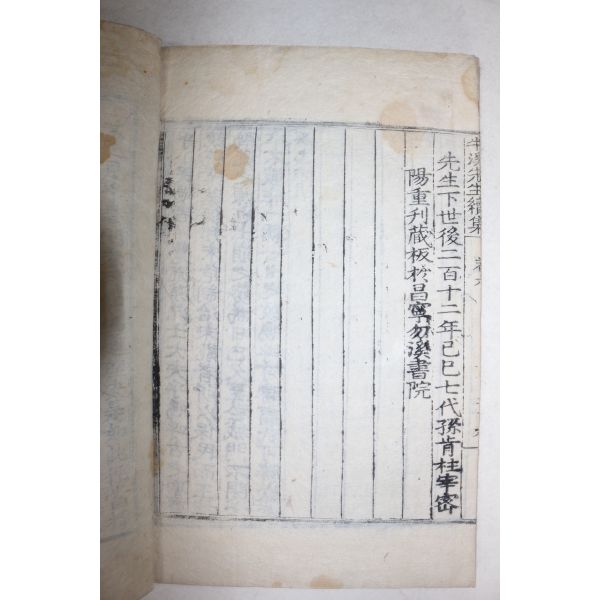 牛溪先生續集 卷六
先生下世後二百十二年己巳七代孫肯柱宰密
陽重刋藏板於昌寧勿溪書院